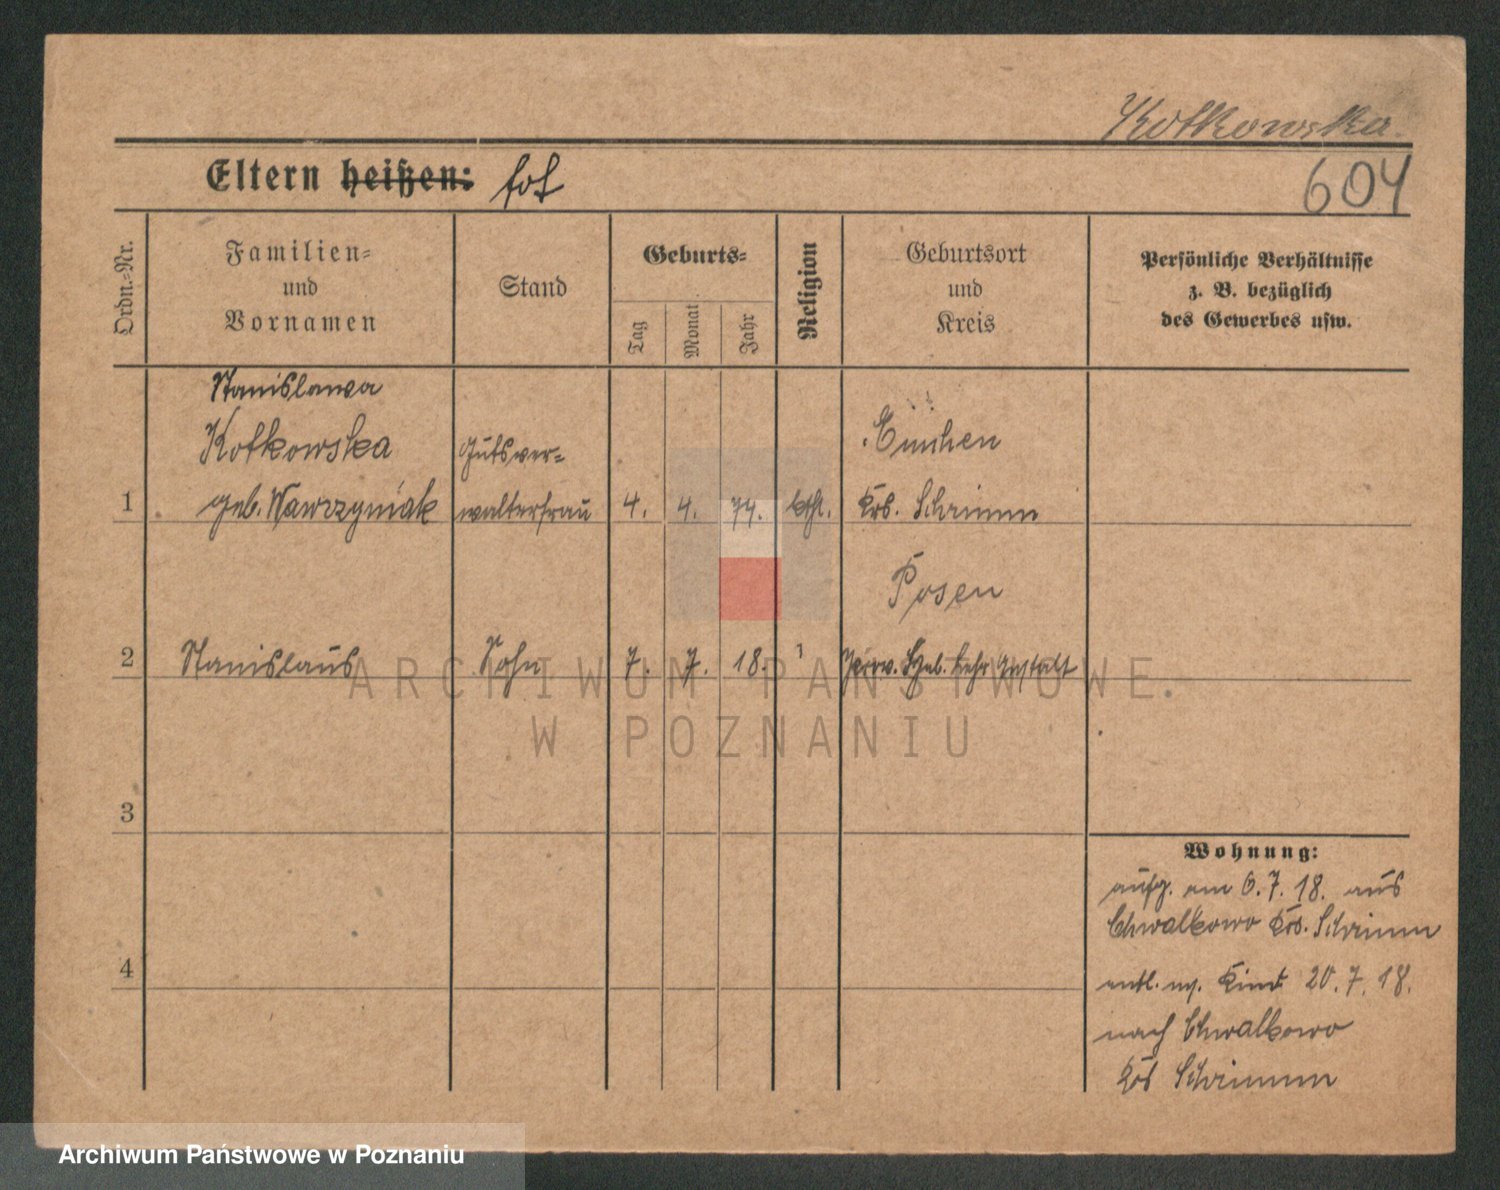 Kotkowska.
Eltern heißen: tot
604
Ordn.-Nr.
Familien-
und
Vornamen
Stand
Geburts-
Tag
Monat
Jahr
Religion
Geburtsort
und
Kreis
Persönliche Verhältnisse
z. B. bezüglich
des Gewerbes usw.
Stanislawa
Kotkowska
geb. Wawrzyniak
Gutsver-
walterfrau
1
4. 4. 74. kth.
Emchen
Krs. Schrimm
Posen
2 Stanislaus Sohn 7. 7. 18. "
Prov. Heb. Lehr Anstalt
3
4
Wohnung:
aufg. am 6.7.18. aus
Chwalkowo Krs. Schrimm
entl. m. Kind 20.7.18.
nach Chwalkowo
Krs Schrimm
ARCHIWUM PAŃSTWOWE
W POZNANIU
Archiwum Państwowe w Poznaniu